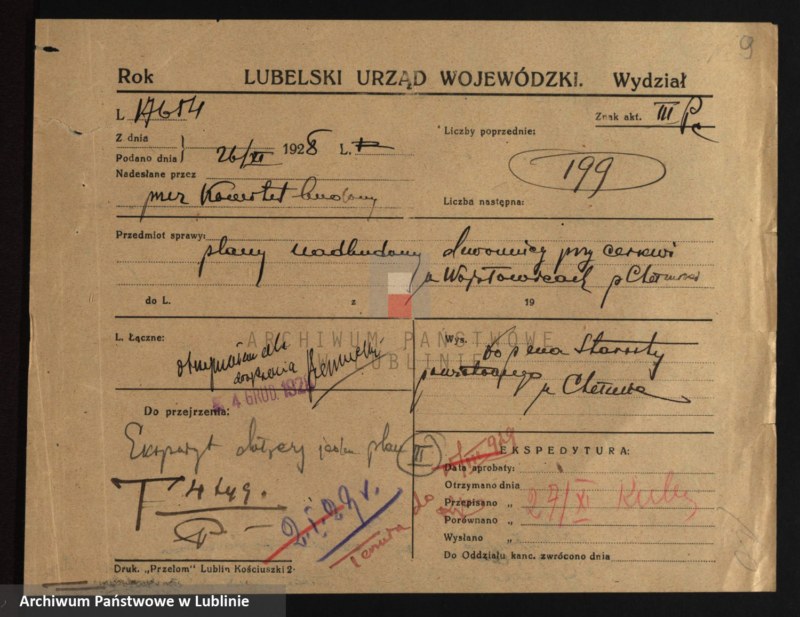 9
Rok LUBELSKI URZĄD WOJEWÓDZKI. Wydział
L 17614
Znak akt. III
Z dnia
Podano dnia 26/XI 1928 L.
Liczby poprzednie:
199
Nadesłane przez
przez Komitet budowy
Liczba następna:
Przedmiot sprawy: plany nadbudowy dzwonnicy przy cerkwi
w Wojsławicach p Chełmski
do L. z 19
L. Łączne:
ARCHIWUM PAŃSTWOWE
W LUBLINIE
otrzymałem dla
doręczenia
4 GRUD. 192
Wys. do pana Starosty
powiatowego
w Chełmie
Do przejrzenia:
plan II
EKSPEDYTURA:
Data aprobaty:
Otrzymano dnia
Przepisano „ 27/XI
Porównano „
Wysłano „
Do Oddziału kanc. zwrócono dnia
T 4 449.
2.I.29 r.
Druk. „Przełom” Lublin Kościuszki 2·
Archiwum Państwowe w Lublinie